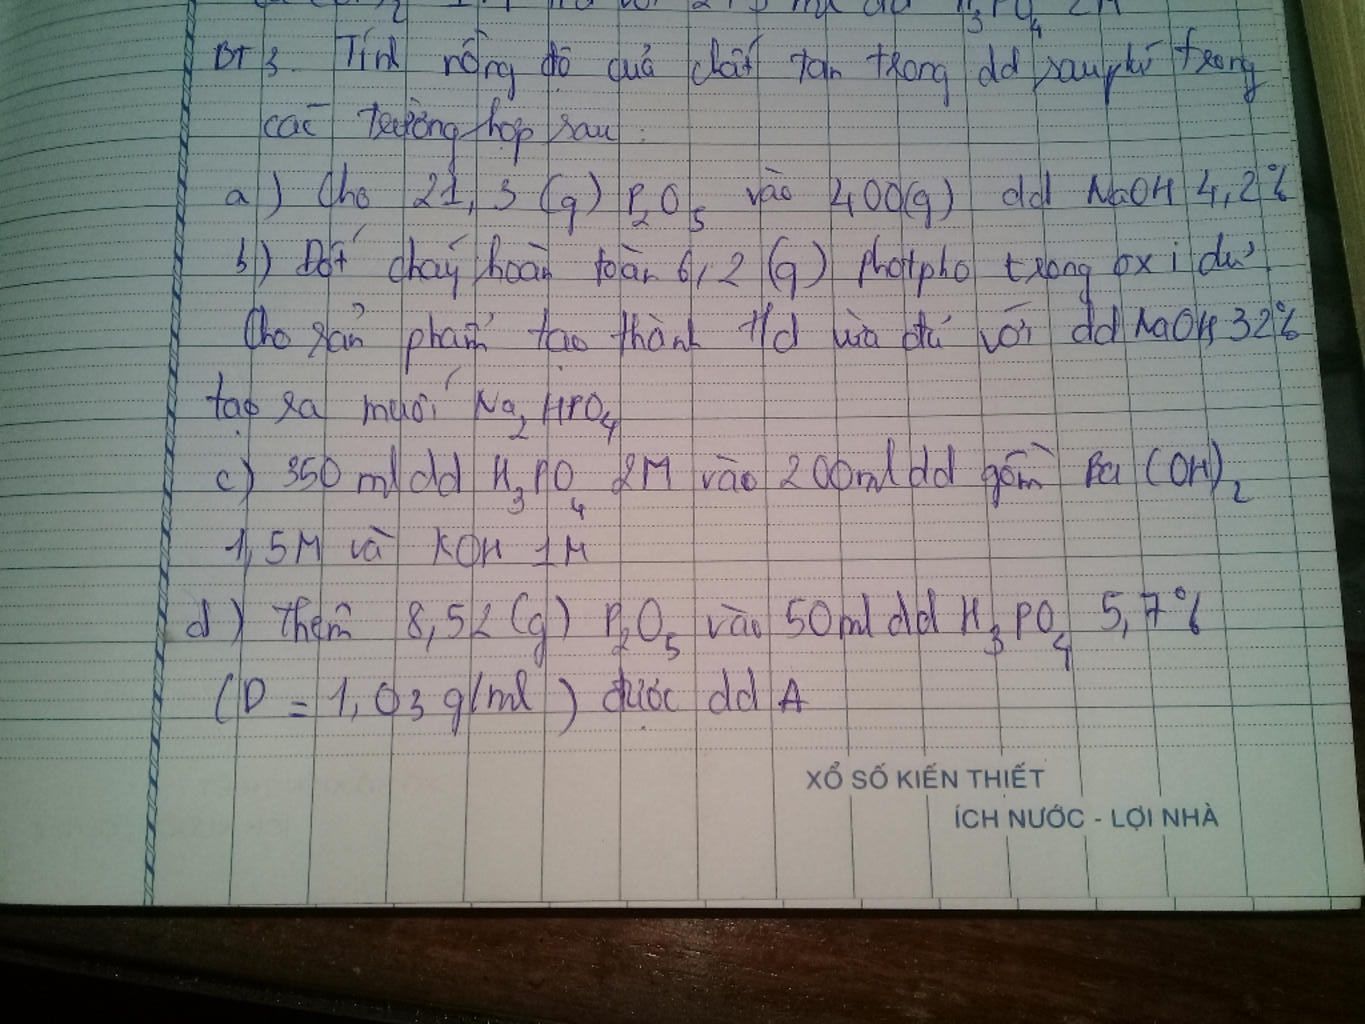 H3PO4 2M
BT 3. Tính nồng độ của chất tan trong dd sau pứ trong
các trường hợp sau:
a) Cho 21,3 (g) P2O5 vào 400(g) dd NaOH 4,2%
b) Đốt cháy hoàn toàn 6,2 (g) photpho trong oxi dư.
Cho sản phẩm tạo thành t/d vừa đủ với dd NaOH 32%
tạo ra muối Na2HPO4
c) 350 ml dd H3PO4 2M vào 200ml dd gồm Ba(OH)2
1,5M và KOH 1M
d) Thêm 8,52 (g) P2O5 vào 50ml dd H3PO4 5,7%
(D = 1,03 g/ml) được dd A
XỔ SỐ KIẾN THIẾT
ÍCH NƯỚC - LỢI NHÀ